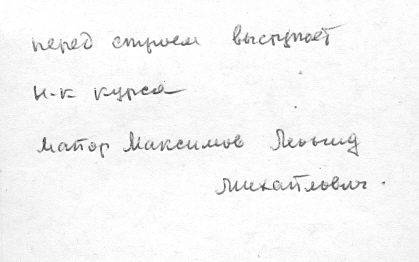 перед строем выступает
н-к курса
майор Максимов Леонид
Михайлович.